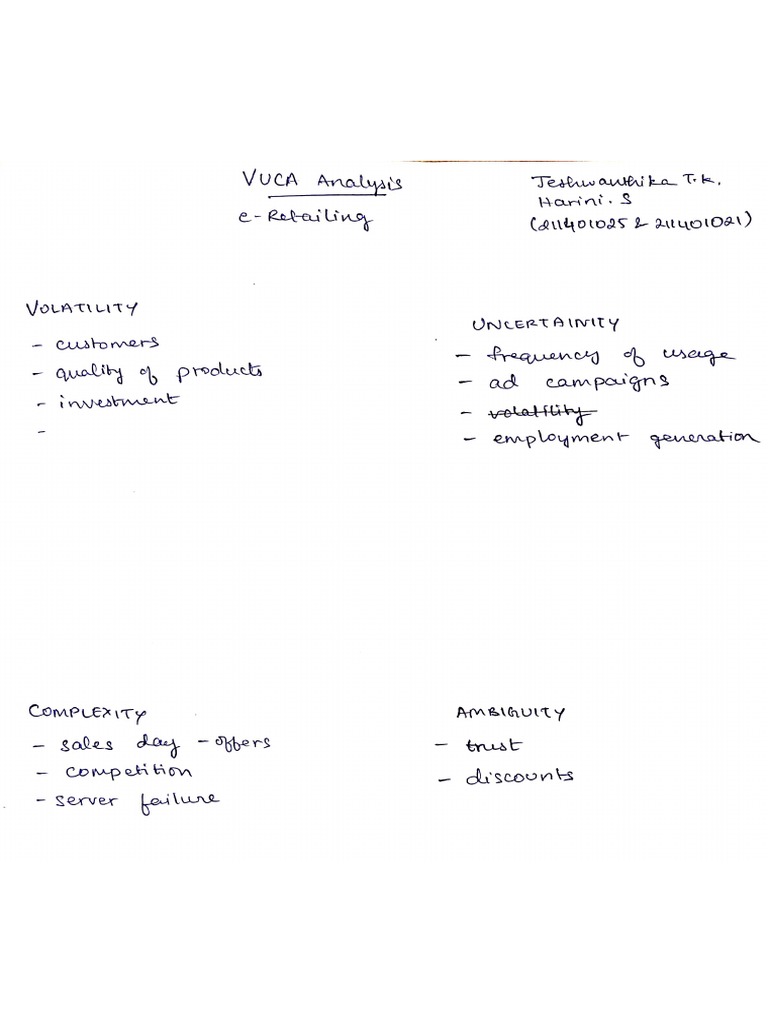 VUCA Analysis
e-Retailing
Jeshwanthika T.K.
Harini. S
(211401025 & 211401021)
VOLATILITY
- customers
- quality of products
- investment
-
UNCERTAINITY
- frequency of usage
- ad campaigns
- volatility
- employment generation
COMPLEXITY
- sales day - offers
- competition
- server failure
AMBIGUITY
- trust
- discounts